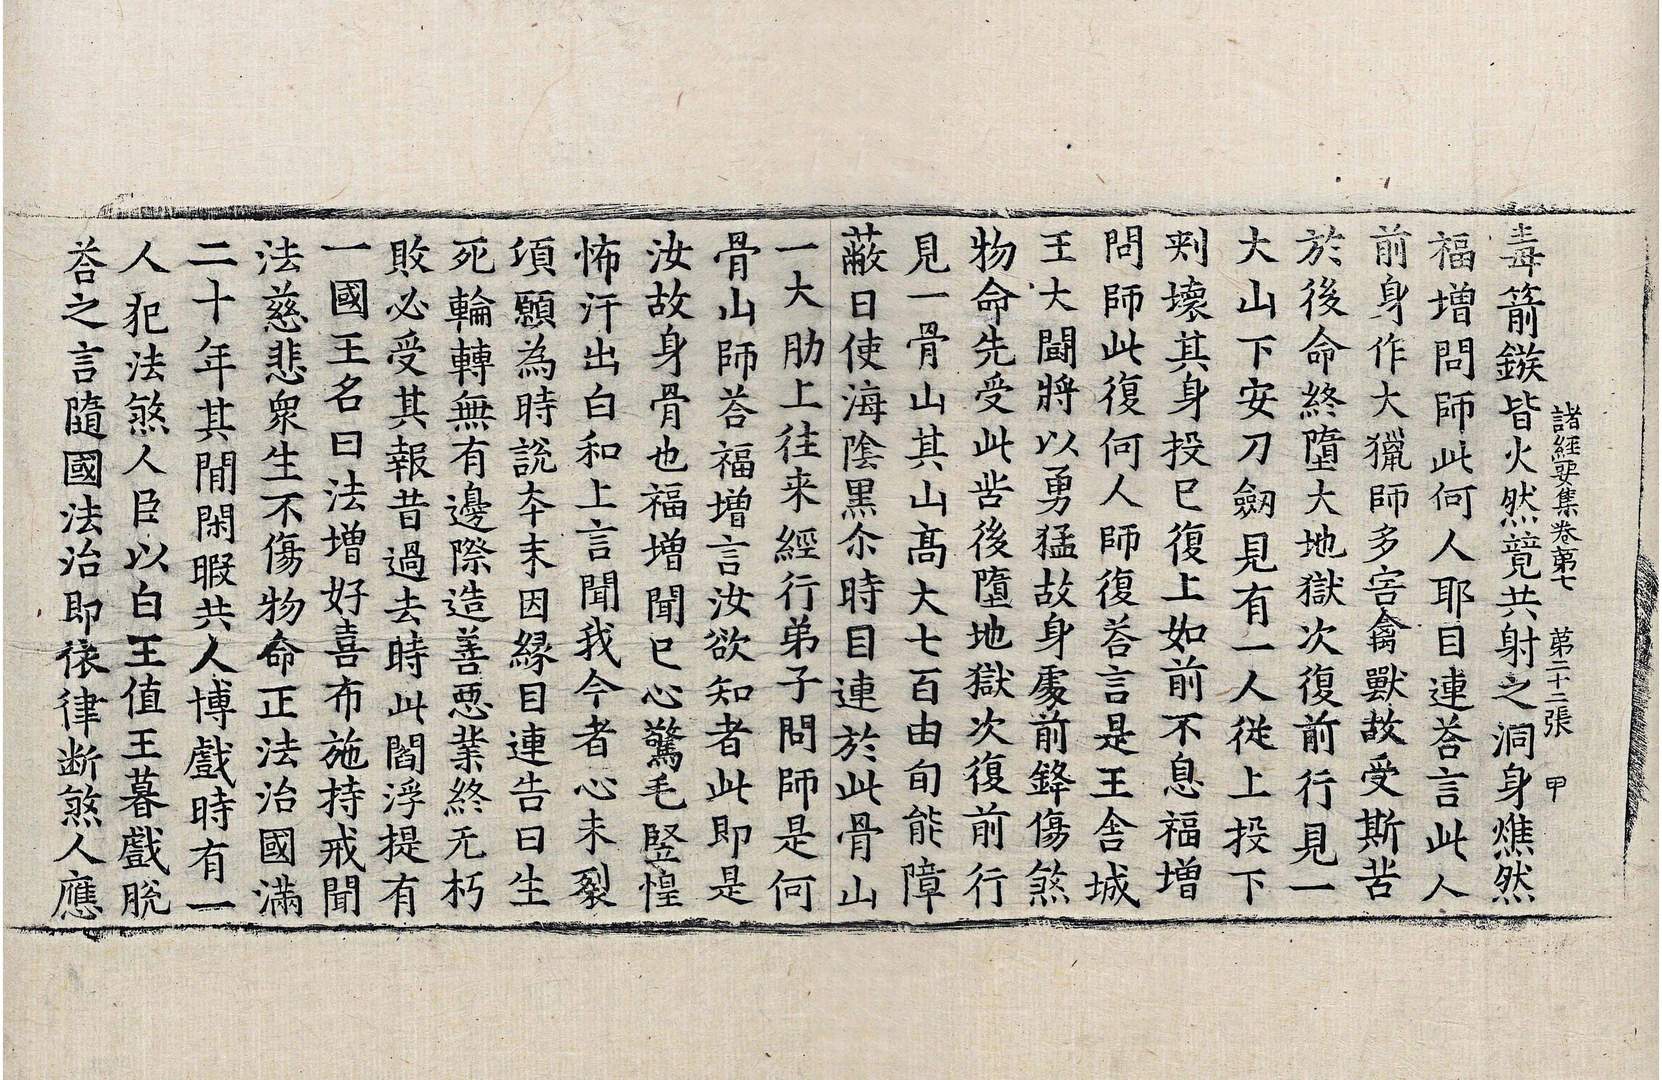 諸經要集卷第七　第二十二張　甲
毒箭鏃皆火然競共射之洞身燋然
福增問師此何人耶目連荅言此人
前身作大獵師多害禽獸故受斯苦
於後命終墮大地獄次復前行見一
大山下安刀劔見有一人從上投下
刾壞其身投已復上如前不息福增
問師此復何人師復荅言是王舍城
王大鬪將以勇猛故身處前鋒傷煞
物命先受此苦後墮地獄次復前行
見一骨山其山髙大七百由旬能障
蔽日使海陰黒尒時目連於此骨山
一大肋上往来經行弟子問師是何
骨山師荅福增言汝欲知者此即是
汝故身骨也福增聞已心驚毛竪惶
怖汗出白和上言聞我今者心未裂
頃願為時說夲末因緣目連告曰生
死輪轉無有邊際造善惡業終无朽
敗必受其報昔過去時此閻浮提有
一國王名曰法增好喜布施持戒聞
法慈悲衆生不傷物命正法治國滿
二十年其閒閑暇共人博戲時有一
人犯法煞人臣以白王值王暮戲脫
荅之言隨國法治即依律断煞人應